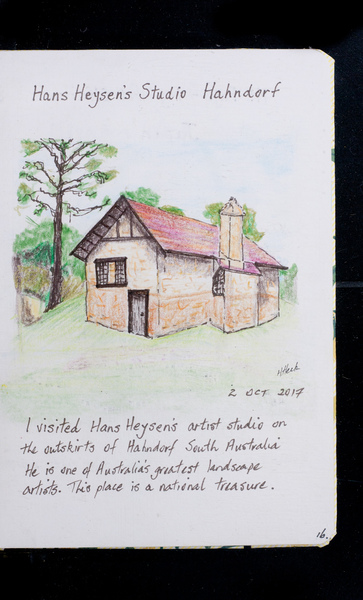 Hans Heysen's Studio Hahndorf
2 OCT 2017
I visited Hans Heysen's artist studio on
the outskirts of Hahndorf South Australia
He is one of Australia's greatest landscape
artists. This place is a national treasure.
16.